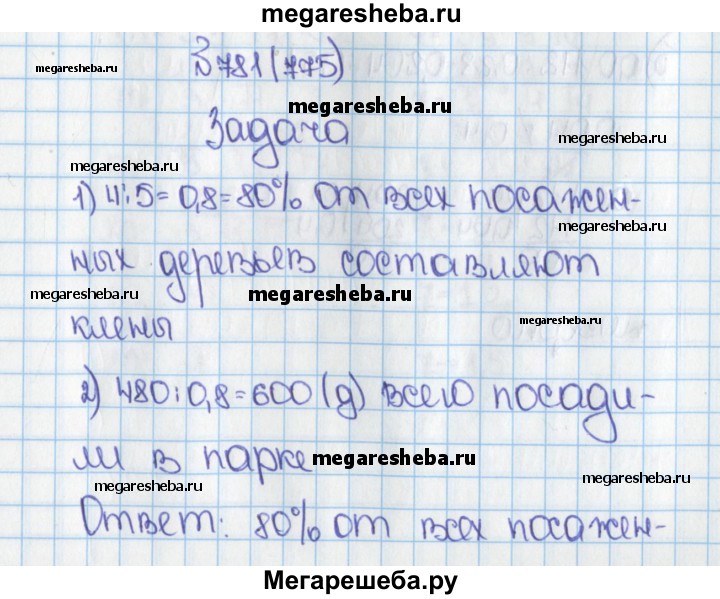 megaresheba.ru
№781(775)
megaresheba.ru
megaresheba.ru
Задача
megaresheba.ru
megaresheba.ru
1) 4:5=0,8=80% от всех посажен-
megaresheba.ru
ных деревьев составляют
megaresheba.ru
megaresheba.ru
клены
megaresheba.ru
2) 480:0,8=600 (д) всего посади-
ли в парке
megaresheba.ru
megaresheba.ru
megaresheba.ru
Ответ: 80% от всех посажен-
Мегарешеба.ру